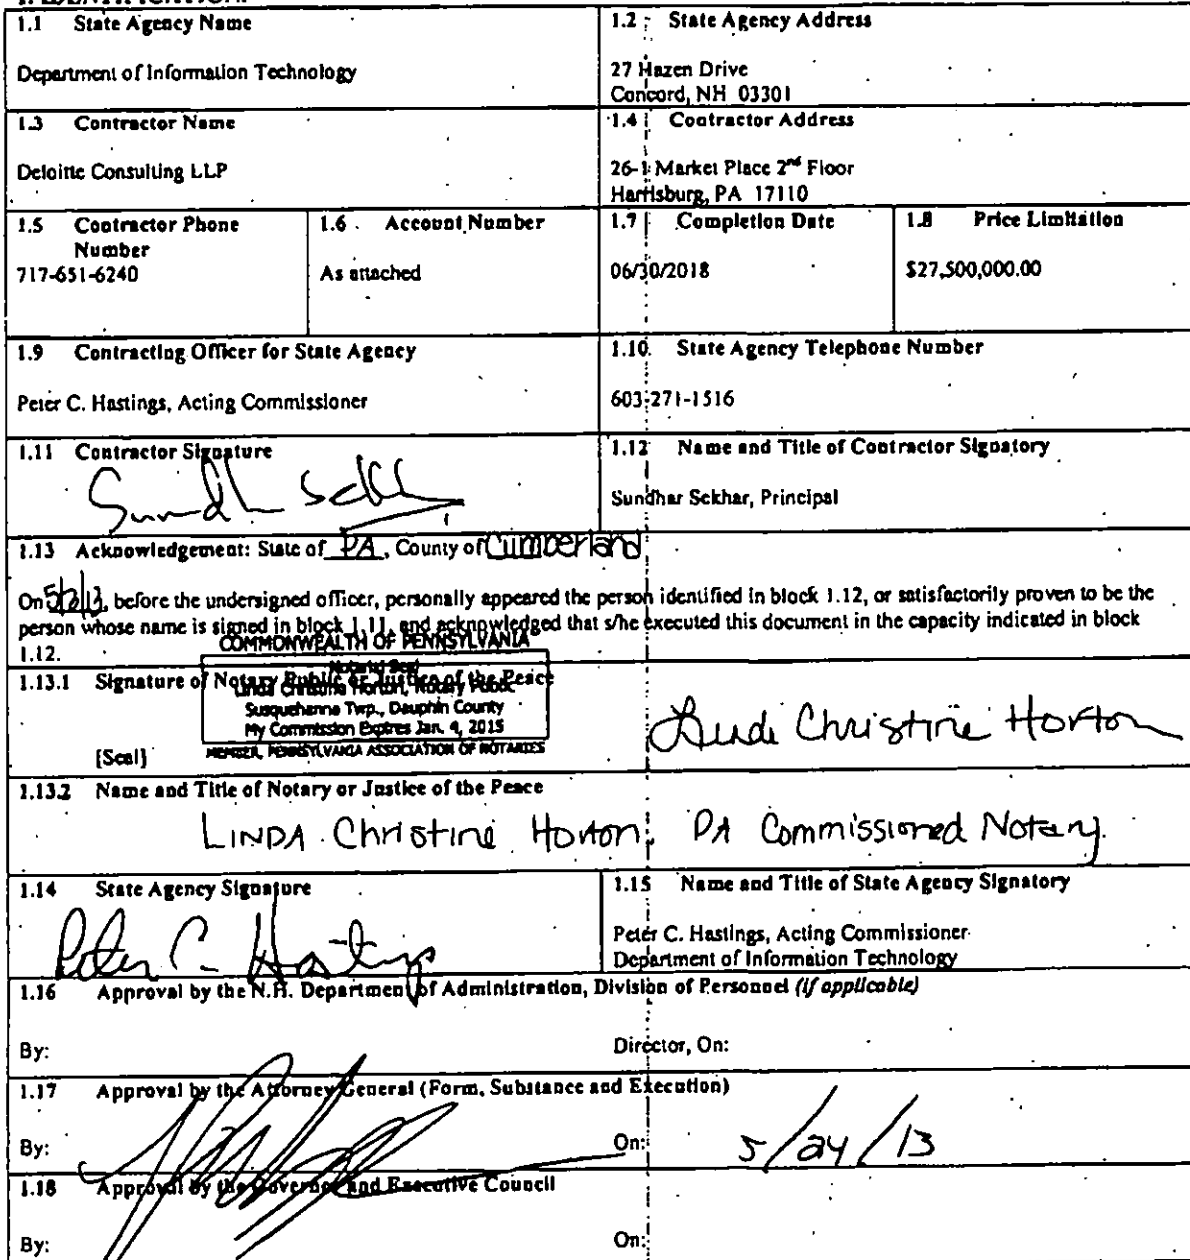 1.1 State Agency Name
Department of Information Technology
1.2 State Agency Address
27 Hazen Drive
Concord, NH 03301
1.3 Contractor Name
Deloitte Consulting LLP
1.4 Contractor Address
26-1 Market Place 2nd Floor
Harrisburg, PA 17110
1.5 Contractor Phone
Number
717-651-6240
1.6 Account Number
As attached
1.7 Completion Date
06/30/2018
1.8 Price Limitation
$27,500,000.00
1.9 Contracting Officer for State Agency
Peter C. Hastings, Acting Commissioner
1.10. State Agency Telephone Number
603-271-1516
1.11 Contractor Signature
1.12 Name and Title of Contractor Signatory
Sundhar Sekhar, Principal
1.13 Acknowledgement: State of PA, County of Cumberland
On , before the undersigned officer, personally appeared the person identified in block 1.12, or satisfactorily proven to be the
person whose name is signed in block 1.11, and acknowledged that s/he executed this document in the capacity indicated in block
1.12.
COMMONWEALTH OF PENNSYLVANIA
Notarial Seal
Linda Christine Horton, Notary Public
Susquehanna Twp., Dauphin County
My Commission Expires Jan. 4, 2015
MEMBER, PENNSYLVANIA ASSOCIATION OF NOTARIES
1.13.1 Signature of Notary Public or Justice of the Peace
[Seal]
Christine Horton
1.13.2 Name and Title of Notary or Justice of the Peace
LINDA Christine Horton, PA Commissioned Notary
1.14 State Agency Signature
Peter C. Hastings
1.15 Name and Title of State Agency Signatory
Peter C. Hastings, Acting Commissioner
Department of Information Technology
1.16 Approval by the N.H. Department of Administration, Division of Personnel (if applicable)
By:
Director, On:
1.17 Approval by the Attorney General (Form, Substance and Execution)
By:
On: 5/24/13
1.18 Approval by the Governor and Executive Council
By:
On: